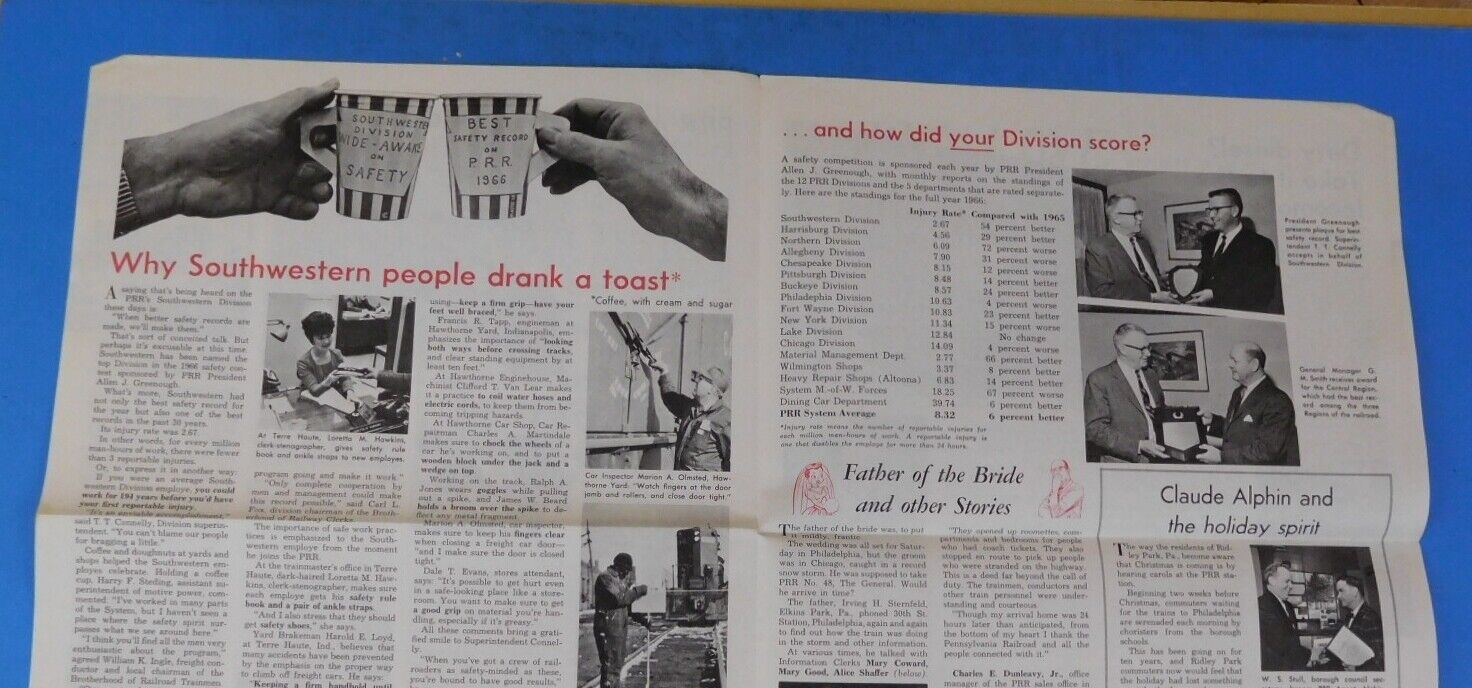 SOUTHWESTE
DIVISION
WIDE-AWAKE
ON
SAFETY
BEST
SAFETY RECORD
ON
P.R.R.
1966
Why Southwestern people drank a toast*
A saying that's being heard on the
PRR's Southwestern Division
these days is:
"When better safety records are
made, we'll make them."
That's sort of conceited talk. But
perhaps it's excusable at this time.
Southwestern has been named the
top Division in the 1966 safety con-
test sponsored by PRR President
Allen J. Greenough.
What's more, Southwestern had
not only the best safety record for
the year but also one of the best
records in the past 20 years.
Its injury rate was 2.67.
In other words, for every million
man-hours of work, there were fewer
than 3 reportable injuries.
Or, to express it in another way:
If you were an average South-
western Division employe, you could
work for 194 years before you'd have
your first reportable injury.
"It's an enviable accomplishment,"
said T. T. Connelly, Division superin-
tendent. "You can't blame our people
for bragging a little."
Coffee and doughnuts at yards and
shops helped the Southwestern em-
ployes celebrate. Holding a coffee
cup, Harry F. Steding, assistant su-
perintendent of motive power, com-
mented: "I've worked in many parts
of the System, but I haven't seen a
place where the safety spirit sur-
passes what we see around here."
"I think you'll find all the men very
enthusiastic about the program,"
agreed William K. Ingle, freight con-
ductor and local chairman of the
Brotherhood of Railroad Trainmen.
At Terre Haute, Loretta M. Hawkins,
clerk-stenographer, gives safety rule
book and ankle straps to new employes.
program going and make it work"
"Only complete cooperation by
men and management could make
this record possible," said Carl L.
Fox, division chairman of the Broth-
erhood of Railway Clerks.
The importance of safe work prac-
tices is emphasized to the South-
western employe from the moment
he joins the PRR.
At the trainmaster's office in Terre
Haute, dark-haired Loretta M. Haw-
kins, clerk-stenographer, makes sure
each employe gets his safety rule
book and a pair of ankle straps.
"And I also stress that they should
get safety shoes," she says.
Yard Brakeman Harold E. Loyd,
at Terre Haute, Ind., believes that
many accidents have been prevented
by the emphasis on the proper way
to climb off freight cars. He says:
"Keeping a firm handhold until
using—keep a firm grip—have your
feet well braced," he says.
Francis R. Tapp, engineman at
Hawthorne Yard, Indianapolis, em-
phasizes the importance of "looking
both ways before crossing tracks,
and clear standing equipment by at
least ten feet."
At Hawthorne Enginehouse, Ma-
chinist Clifford T. Van Lear makes
it a practice to coil water hoses and
electric cords, to keep them from be-
coming tripping hazards.
At Hawthorne Car Shop, Car Re-
pairman Charles A. Martindale
makes sure to chock the wheels of a
car he's working on, and to put a
wooden block under the jack and a
wedge on top.
Working on the track, Ralph A.
James wears goggles while pulling
out a spike, and James W. Beard
holds a broom over the spike to de-
flect any metal fragment.
Marion A. Olmsted, car inspector,
makes sure to keep his fingers clear
when closing a freight car door—
"and I make sure the door is closed
tight."
Dale T. Evans, stores attendant,
says: "It's possible to get hurt even
in a safe-looking place like a store-
room. You want to make sure to get
a good grip on material you're han-
dling, especially if it's greasy."
All these comments bring a grati-
fied smile to Superintendent Connel-
ly.
"When you've got a crew of rail-
roaders as safety-minded as these,
you're bound to have good results,"
*Coffee, with cream and sugar
Car Inspector Marion A. Olmsted, Haw-
thorne Yard: "Watch fingers at the door
jamb and rollers, and close door tight."
. . . and how did your Division score?
A safety competition is sponsored each year by PRR President
Allen J. Greenough, with monthly reports on the standings of
the 12 PRR Divisions and the 5 departments that are rated separate-
ly. Here are the standings for the full year 1966:
Injury Rate* Compared with 1965
Southwestern Division 2.67 54 percent better
Harrisburg Division 4.56 29 percent better
Northern Division 6.09 72 percent worse
Allegheny Division 7.90 31 percent worse
Chesapeake Division 8.15 12 percent worse
Pittsburgh Division 8.48 14 percent better
Buckeye Division 8.57 24 percent better
Philadelphia Division 10.63 4 percent worse
Fort Wayne Division 10.83 23 percent better
New York Division 11.34 15 percent worse
Lake Division 12.84 No change
Chicago Division 14.09 4 percent worse
Material Management Dept. 2.77 66 percent better
Wilmington Shops 3.37 8 percent better
Heavy Repair Shops (Altoona) 6.83 14 percent better
System M.-of-W. Forces 18.25 67 percent worse
Dining Car Department 39.74 6 percent better
PRR System Average 8.32 6 percent better
*Injury rate means the number of reportable injuries for
each million man-hours of work. A reportable injury is
one that disables the employe for more than 24 hours.
President Greenough
presents plaque for best
safety record. Superin-
tendent T. T. Connelly
accepts in behalf of
Southwestern Division.
General Manager G.
M. Smith receives award
for the Central Region,
which had the best rec-
ord among the three
Regions of the railroad.
Father of the Bride
and other Stories
The father of the bride was, to put
it mildly, frantic.
The wedding was all set for Satur-
day in Philadelphia, but the groom
was in Chicago, caught in a record
snow storm. He was supposed to take
PRR No. 48, The General. Would
he arrive in time?
The father, Irving H. Sternfeld,
Elkins Park, Pa., phoned 30th St.
Station, Philadelphia, again and again
to find out how the train was doing
in the storm and other information.
At various times, he talked with
Information Clerks Mary Coward,
Mary Good, Alice Shaffer (below),
"They opened up roomettes, com-
partments and bedrooms for people
who had coach tickets. They also
stopped en route to pick up people
who were stranded on the highway.
This is a deed far beyond the call of
duty. The trainmen, conductors and
other train personnel were under-
standing and courteous.
"Though my arrival home was 24
hours later than anticipated, from
the bottom of my heart I thank the
Pennsylvania Railroad and all the
people connected with it."
Charles E. Dunleavy, Jr., office
manager of the PRR sales office in
Claude Alphin and
the holiday spirit
The way the residents of Rid-
ley Park, Pa., become aware
that Christmas is coming is by
hearing carols at the PRR sta-
tion.
Beginning two weeks before
Christmas, commuters waiting
the trains to Philadelphia
are serenaded each morning by
choristers from the borough
schools.
This has been going on for
ten years, and Ridley Park
commuters now would feel that
the holiday had lost something
W. S. Stull, borough council sec-